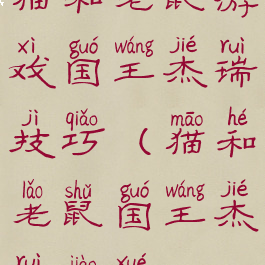 猫和老鼠游
xì guó wáng jié ruì
戏国王杰瑞
jì qiǎo māo hé
技巧(猫和
lǎo shǔ guó wáng jié
老鼠国王杰
ruì jiào xué